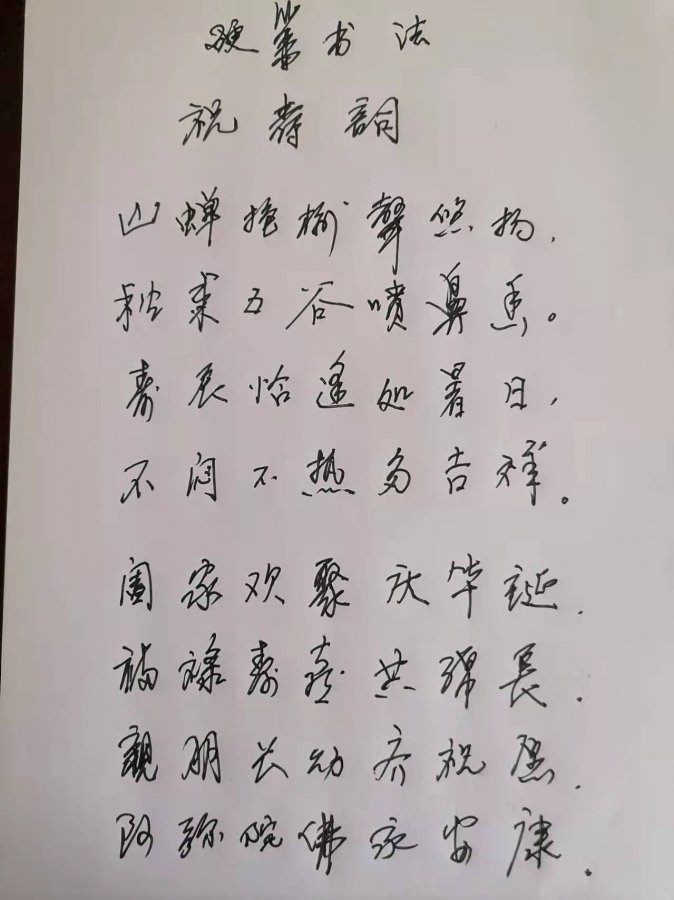 硬笔书法
祝寿詞
山蝉抱柳聲悠扬，
秋来五谷喷鼻香。
寿辰恰逢处暑日，
不闷不热多吉祥。
阖家欢聚庆华誕，
福禄寿喜共绵長。
親朋长幼齐祝愿，
阿弥陀佛永安康。